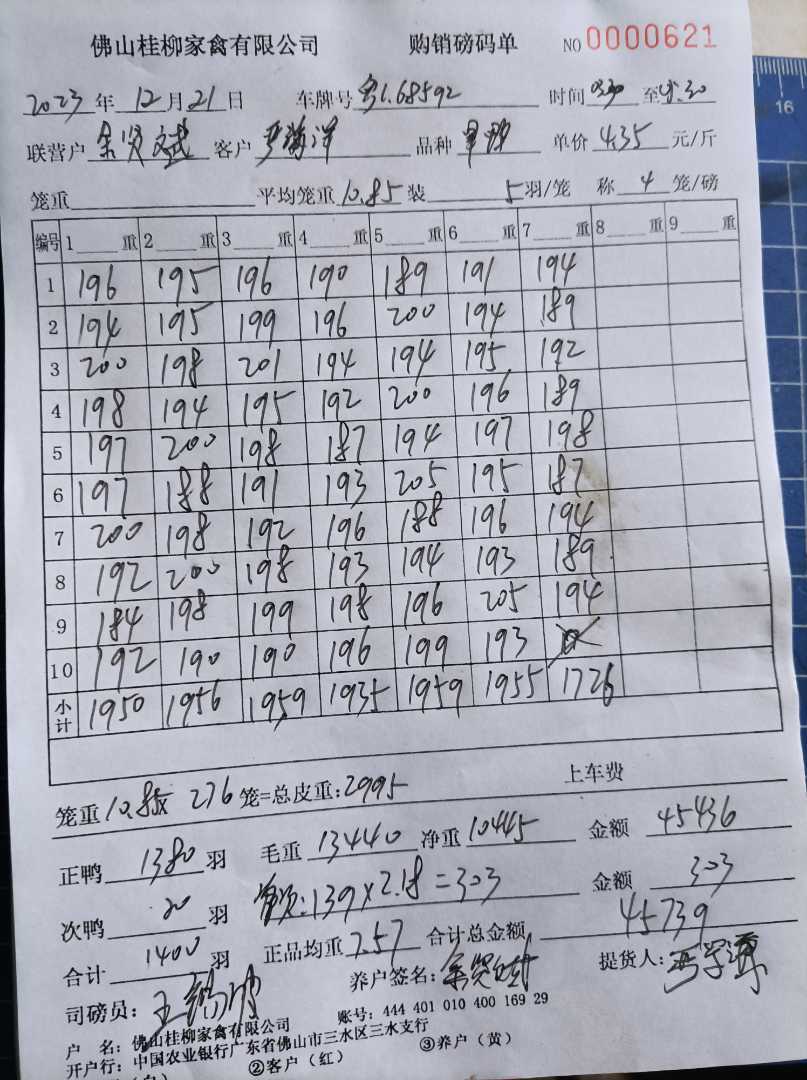 佛山桂柳家禽有限公司 购销磅码单 NO 0000621
2023年 12月 21日 车牌号 粤L68592 时间 至
联营户 余贤斌 客户 严海洋 品种 单价 4.35 元/斤
笼重 平均笼重 10.85 装 5 羽/笼 称 4 笼/磅
编号 1 重 2 重 3 重 4 重 5 重 6 重 7 重 8 重 9 重
1 196 195 196 190 189 191 194
2 194 195 199 196 200 194 189
3 200 198 201 194 194 195 192
4 198 194 195 192 200 196 189
5 197 200 198 187 194 197 198
6 197 188 191 193 205 195 187
7 200 198 192 196 188 196 194
8 192 200 198 193 194 193 189
9 184 198 199 198 196 205 194
10 192 190 190 196 199 193
小计 1950 1956 1959 1935 1959 1955 1726
上车费
笼重 10.85x 276 笼=总皮重:2995
正鸭 1380 羽 毛重 13440 净重 10445 金额 45436
次鸭 20 羽 :139×2.18=303 金额 303
合计 1400 羽 正品均重 7.57 合计总金额 45739
司磅员: 养户签名: 余贤斌 提货人:
户 名:佛山桂柳家禽有限公司 账号:444 401 010 400 169 29
开户行:中国农业银行广东省佛山市三水区三水支行
②客户(红) ③养户(黄)
16